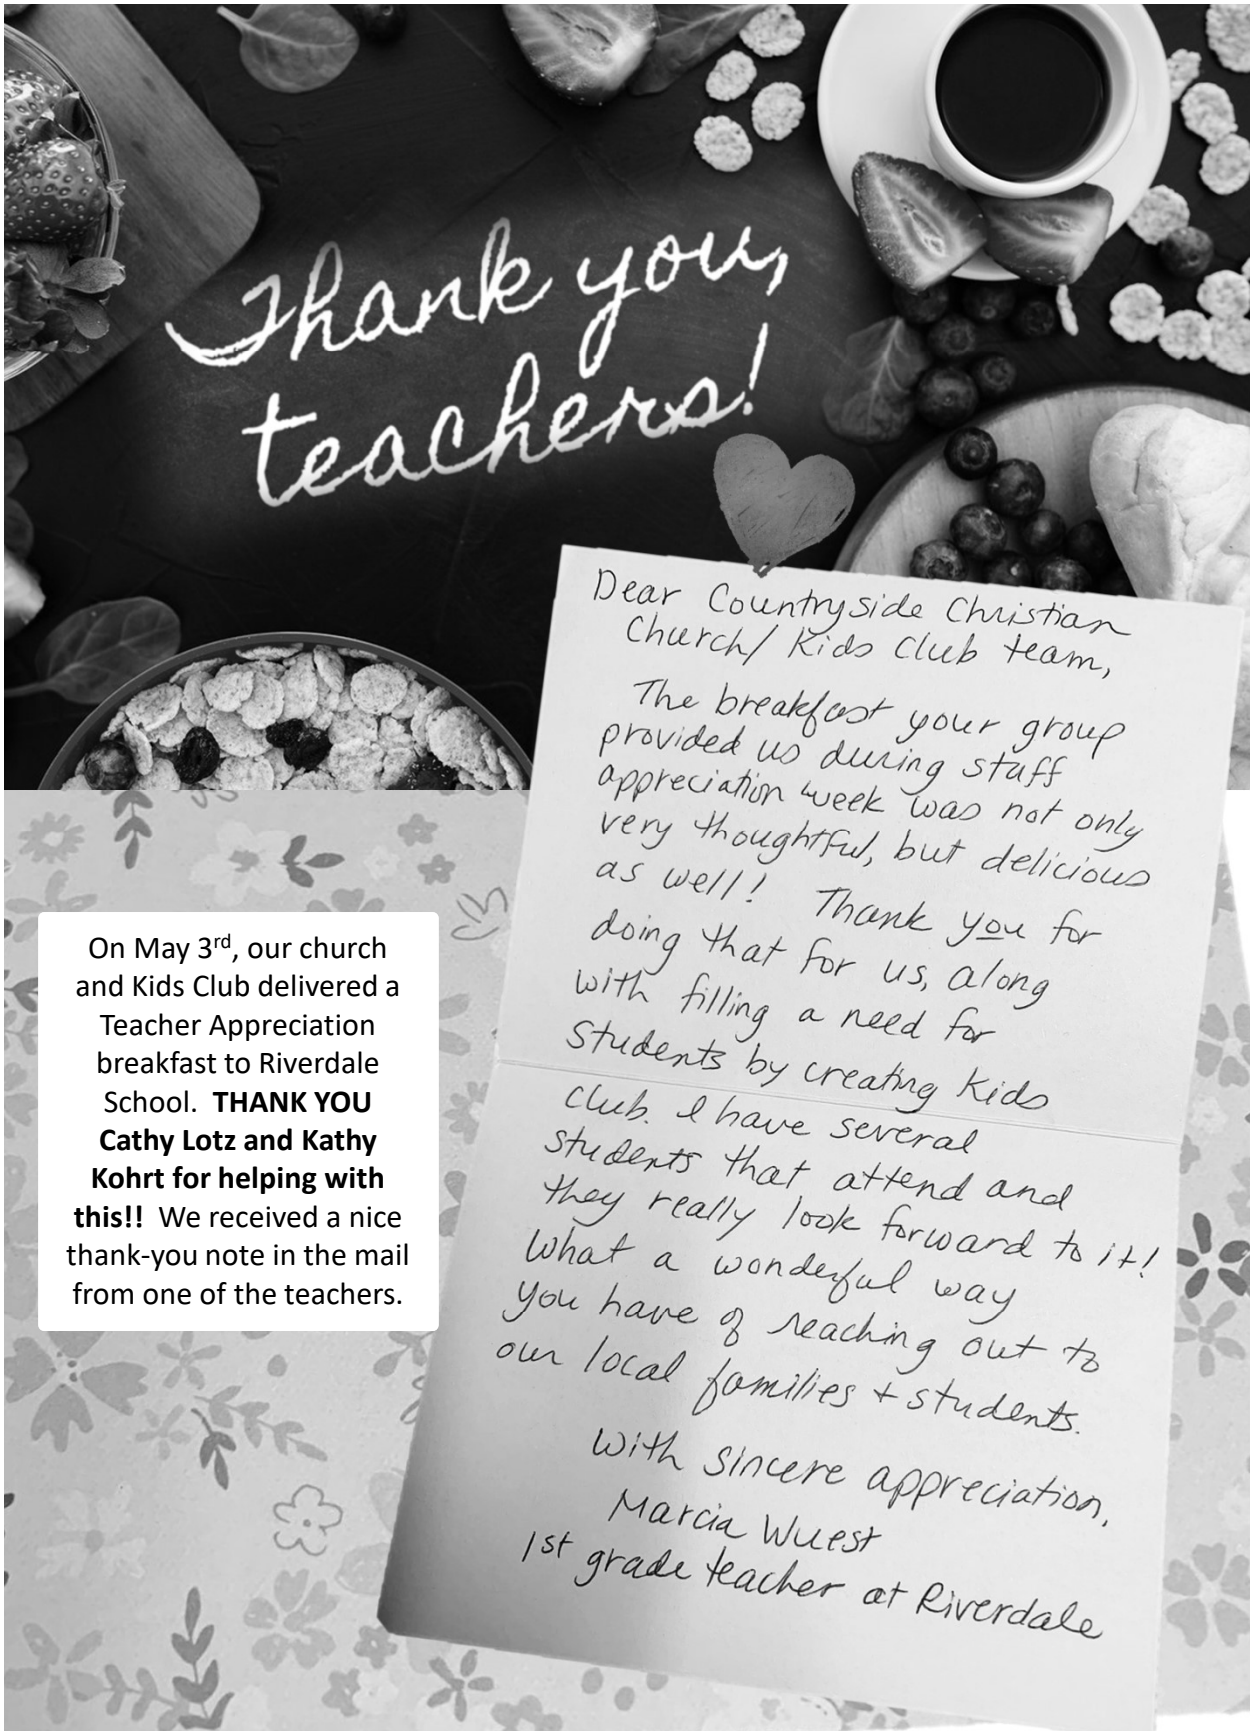 Thank you,
teachers!
Dear Countryside Christian
Church/ Kids Club team,
The breakfast your group
provided us during staff
appreciation week was not only
very thoughtful, but delicious
as well! Thank you for
doing that for us, along
with filling a need for
students by creating Kids
Club. I have several
students that attend and
they really look forward to it!
What a wonderful way
you have of reaching out to
our local families + students.
With sincere appreciation,
Marcia Wuest
1st grade teacher at Riverdale
On May 3rd, our church
and Kids Club delivered a
Teacher Appreciation
breakfast to Riverdale
School. THANK YOU
Cathy Lotz and Kathy
Kohrt for helping with
this!! We received a nice
thank-you note in the mail
from one of the teachers.